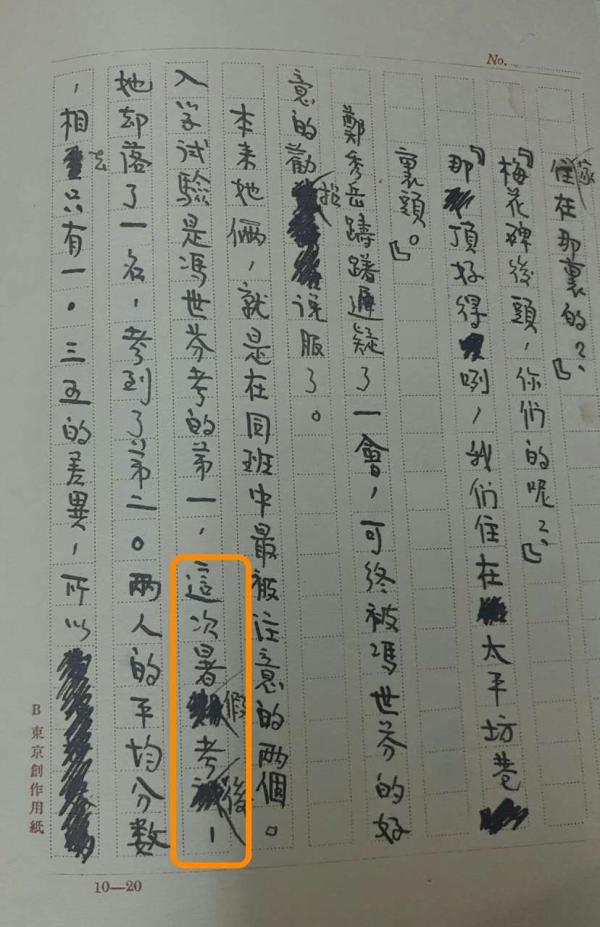 No.
家
住在那裏的?』
『梅花碑後頭,你們的呢?』
『那頂好得咧,我們住在太平坊巷
裏頭。』
鄭秀岳躊躇遲疑了一會,可終被馮世芬的好
意的勸招说服了。
本來她倆,就是在同班中最被注意的两個。
入学试驗是馮世芬考的第一,這次暑假考後,
她却落了一名,考到了第二。两人的平均分数
,相去只有一。三五的差異,所以
B 東京創作用紙
10—20